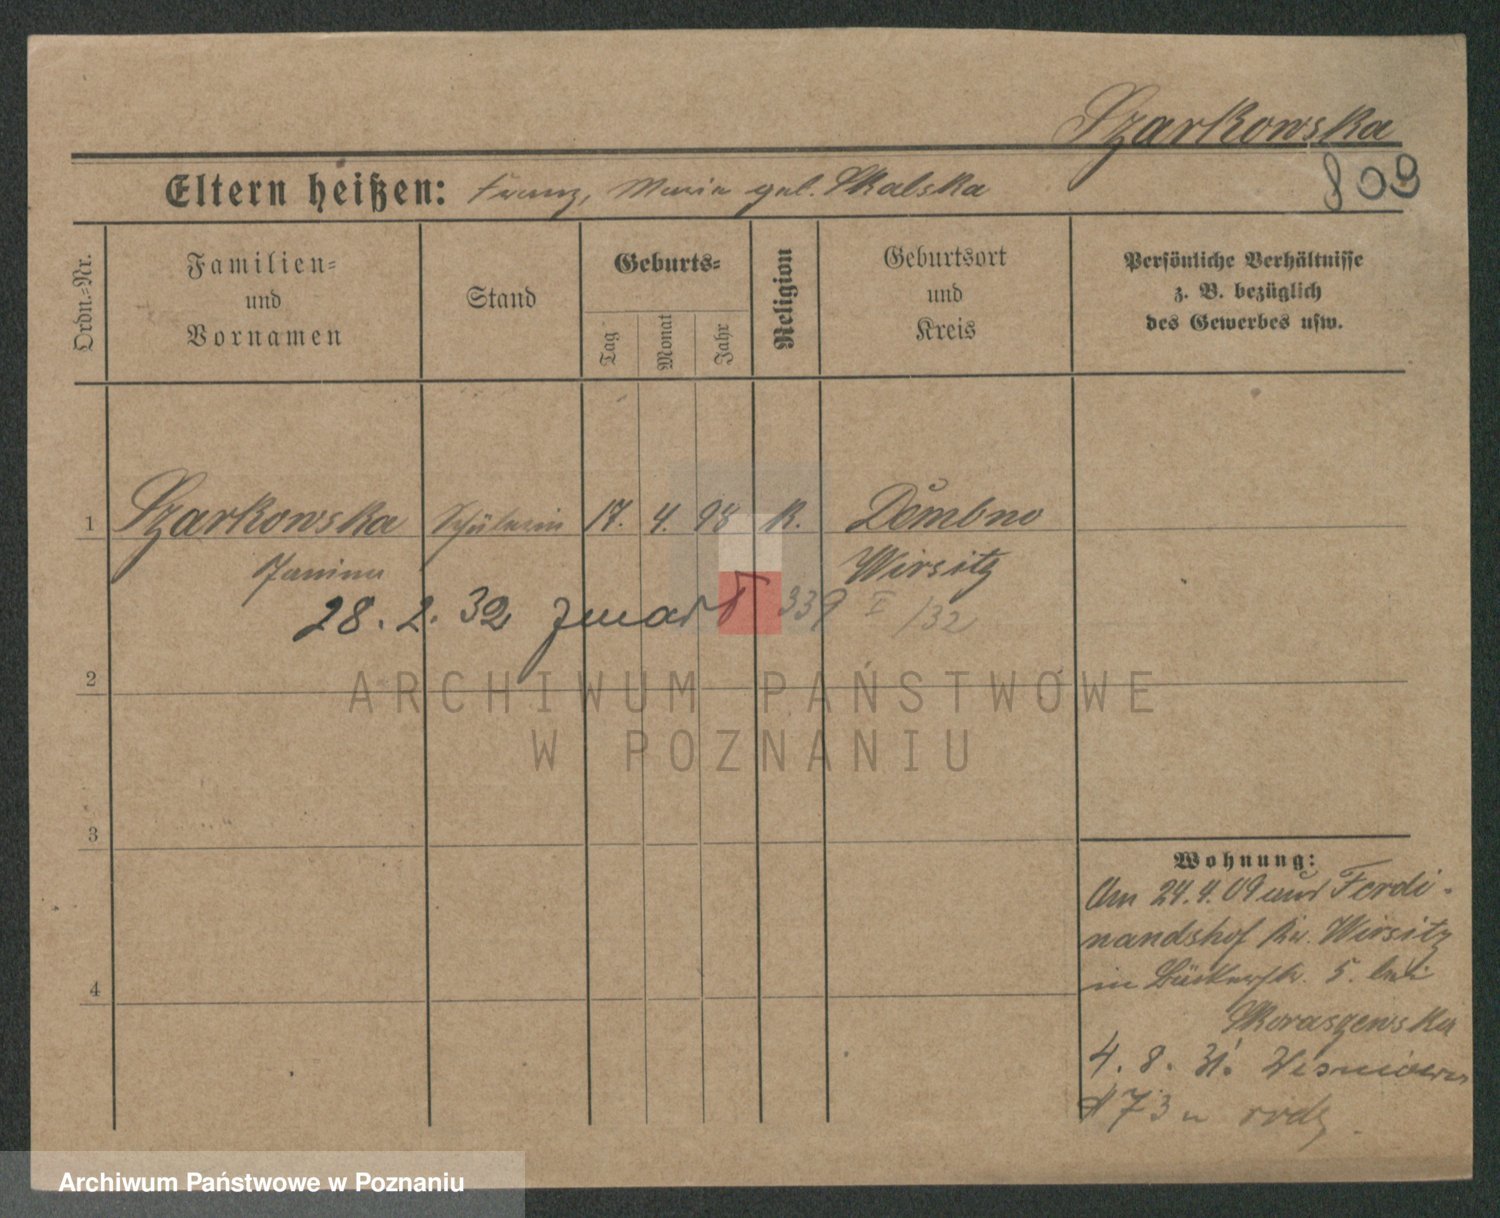 Szarkowska
809
Eltern heißen: Franz, Maria geb. Skalska
Ordn.=Nr.
Familien=
und
Vornamen
Stand
Geburts=
Tag
Monat
Jahr
Religion
Geburtsort
und
Kreis
Persönliche Verhältnisse
z. B. bezüglich
des Gewerbes usw.
1 Szarkowska Schülerin 17. 4. 98 K. Dembno
Janina Wirsitz
28. 2. 32 zmarł 339 I /32
2
3
4
Wohnung:
Am 24.4.09 aus Ferdi-
nandshof Kr. Wirsitz
in Bäckerstr. 5. bei
Skoraszewska
4. 8. 31.
73 u rodz.
ARCHIWUM PAŃSTWOWE
W POZNANIU
Archiwum Państwowe w Poznaniu